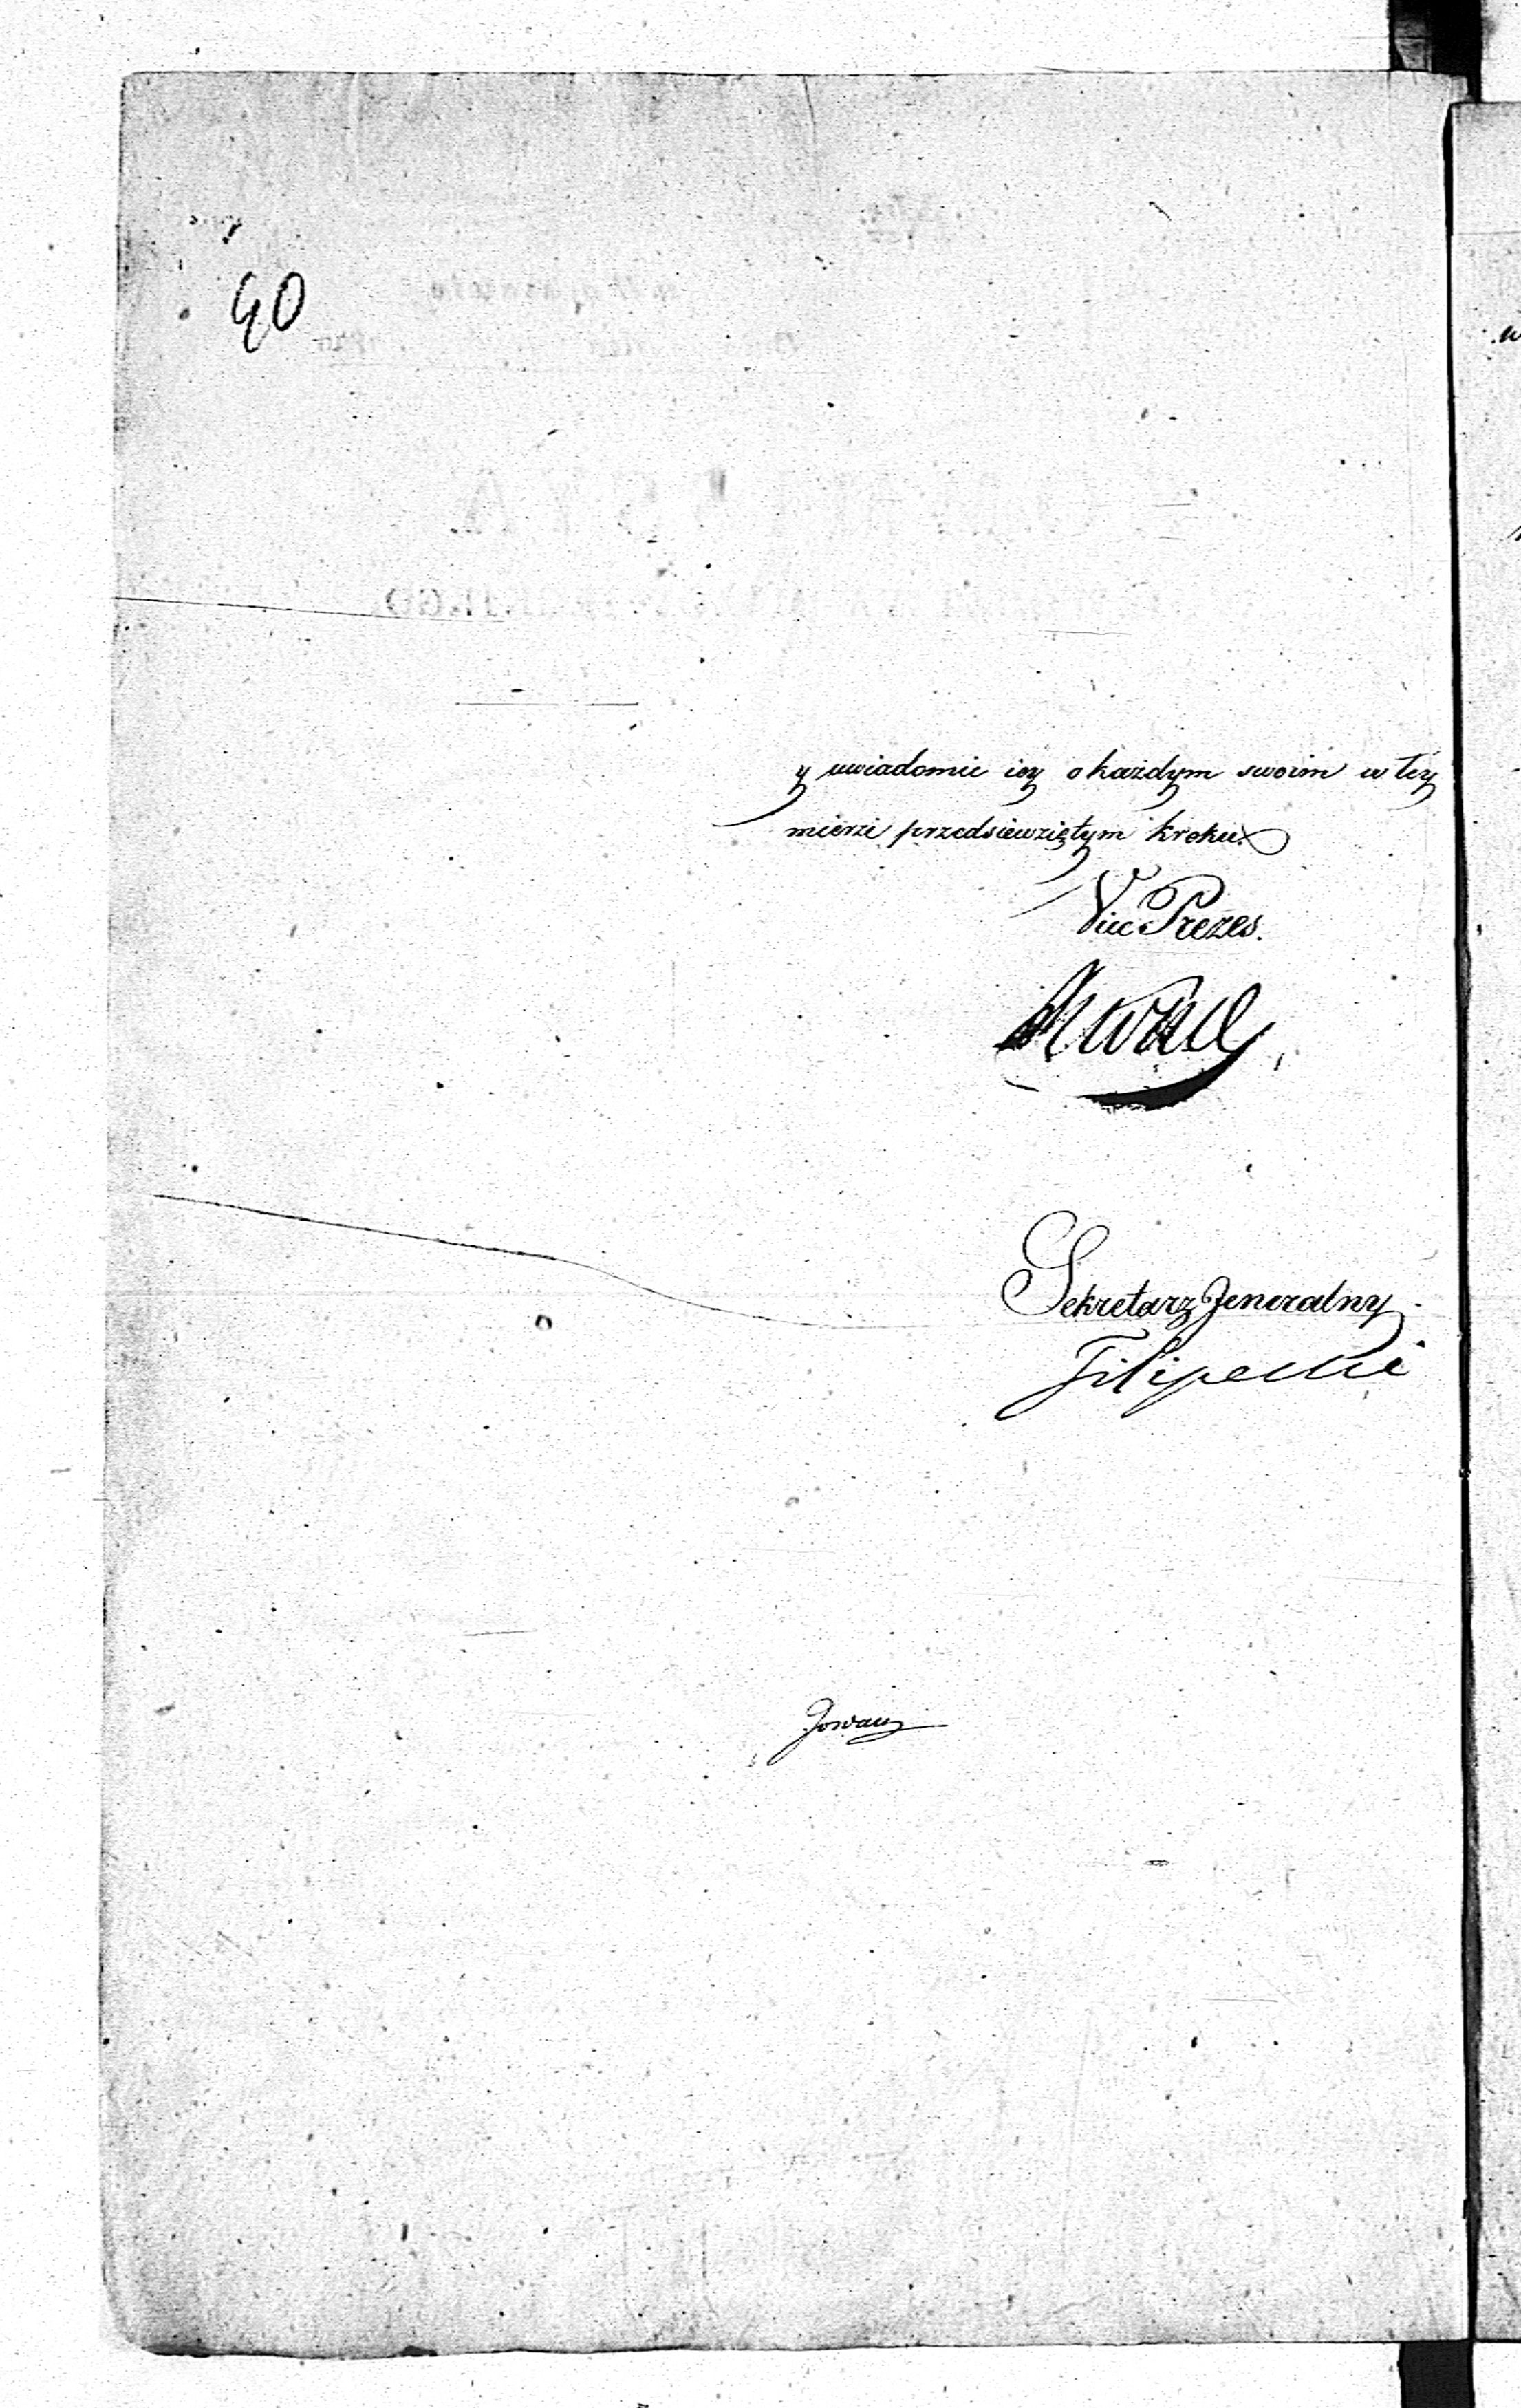 40
y uwiadomic iey o każdym swoim w tey
mierze przedsiewziętym kroku.
Vice Prezes.
Sekretarz Jeneralny
Filipecki